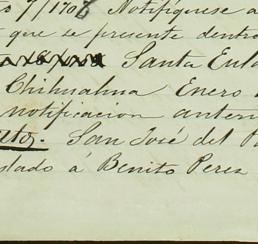 7/1708 Notifíquese a
que se presente dentro
Santa Eula
Chihuahua Enero
notificacion anteri
San José del Pa
slado á Benito Perez